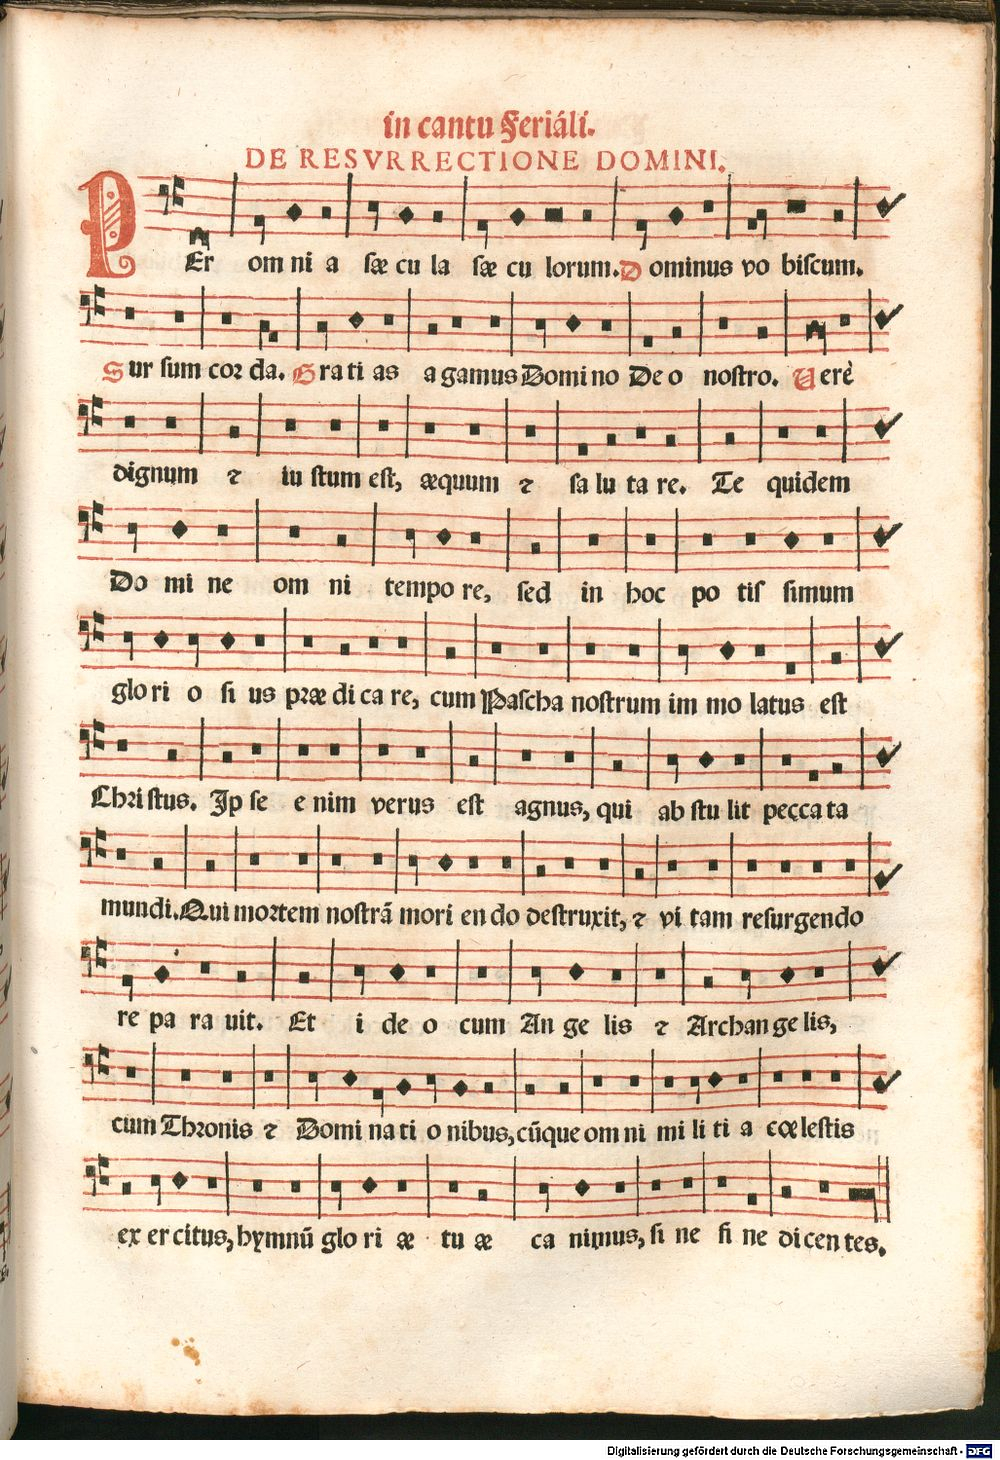 in cantu Feriáli.
DE RESVRRECTIONE DOMINI.
PEr om ni a sæ cu la sæ cu lorum. Dominus vo biscum.
Sur sum cor da. Gra ti as a gamus Domi no De o nostro. Uerè
dignum ⁊ iu stum est, æquum ⁊ sa lu ta re. Te quidem
Do mi ne om ni tempo re, sed in hoc po tis simum
glo ri o si us præ di ca re, cum Pascha nostrum im mo latus est
Chri stus. Ip se e nim verus est agnus, qui ab stu lit pecca ta
mundi. Qui mortem nostrã mori en do destruxit, ⁊ vi tam resurgendo
re pa ra uit. Et i de o cum An ge lis ⁊ Archan ge lis,
cum Thronis ⁊ Domi na ti o nibus, cũque om ni mi li ti a cœ lestis
ex er citus, hymnũ glo ri æ tu æ ca nimus, si ne fi ne di cen tes.
Digitalisierung gefördert durch die Deutsche Forschungsgemeinschaft - DFG